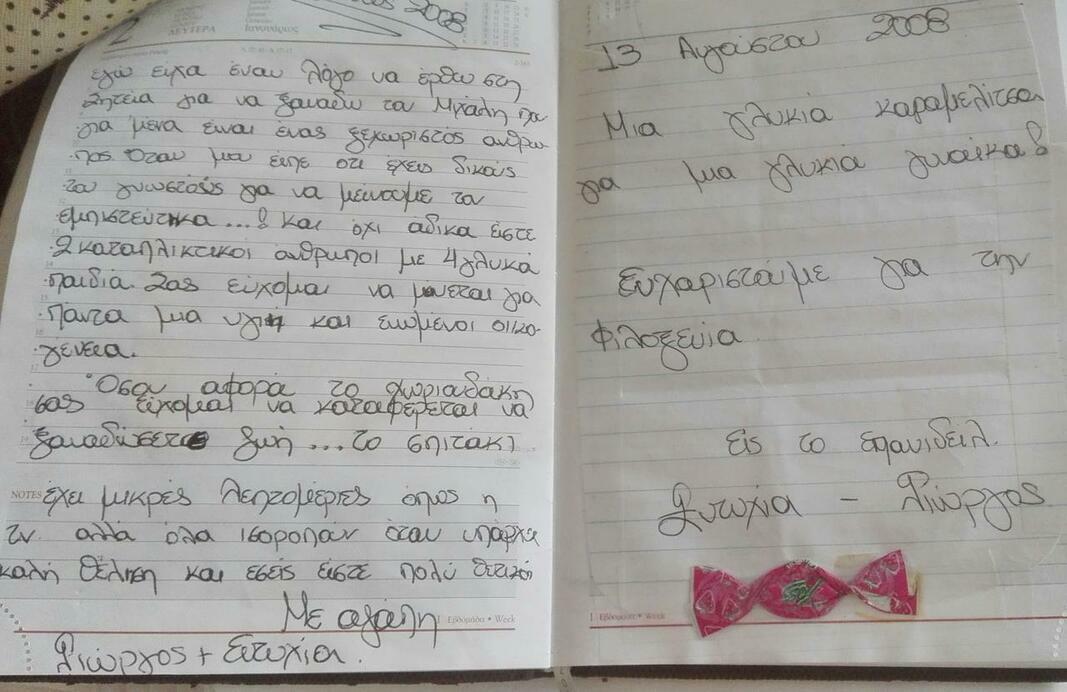 2008
2
ΔΕΥΤΕΡΑ
Ιανουάριος
εγω ειχα έναν λόγο να έρθω στη
Σητεία για να ξαναδω τον Μιχάλη που
για μενα ειναι ενας ξεχωριστος ανθρω
πος. Όταν μου ειπε οτι έχεις δικούς
του γνωστούς για να μεινουμε τον
εμπιστεύτηκα...! και όχι αδικα είστε
2 καταπλικτικοί άνθρωποι με 4 γλυκά
παιδιά. Σας εύχομαι να μεινεται για
πάντα μια υγιη και ενωμένοι οικο-
γενεια.
Όσον αφορά το χωριαδάκη
σας εύχομαι να καταφέρεται να
ξαναδώσετε ζωή... το σπιτάκι
NOTES έχει μικρές λεπτομέριες όπως η
τν. αλλά όλα ισοροπούν όταν υπάρχει
καλή θέληση και εσείς είστε πολύ θετικοί
Με αγάπη
1 Εβδομάδα • Week
Γιώργος + Ευτυχία.
13 Αυγούστου 2008
Μια γλυκιά καραμελίτσα
για μια γλυκιά γυναίκα!
Ευχαριστούμε για την
Φιλοξενία
Εις το επανιδείν.
Ευτυχία - Γιώργος
1 Εβδομάδα • Week